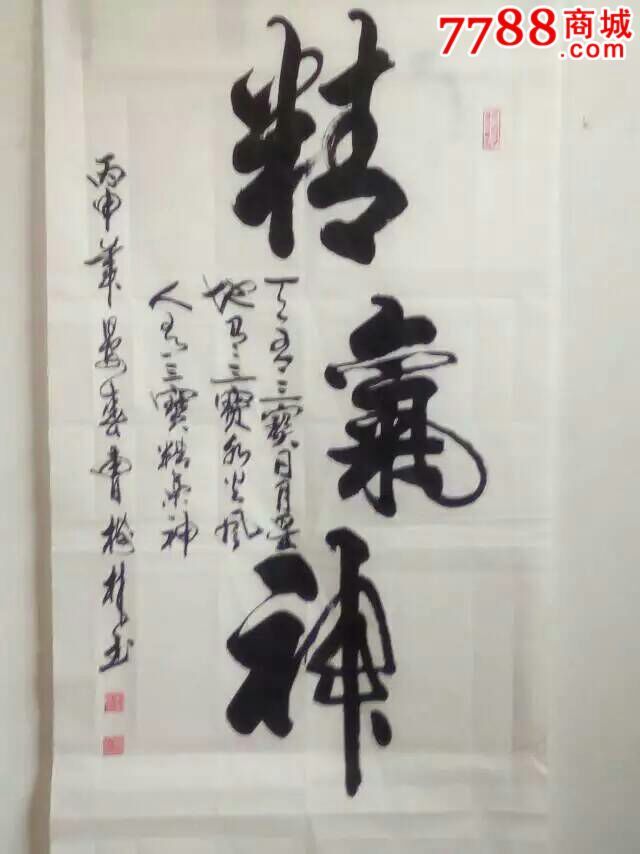 7788商城
.com
精氣神
天有三寶日月星
地有三寶水火風
人有三寶精氣神
丙申年